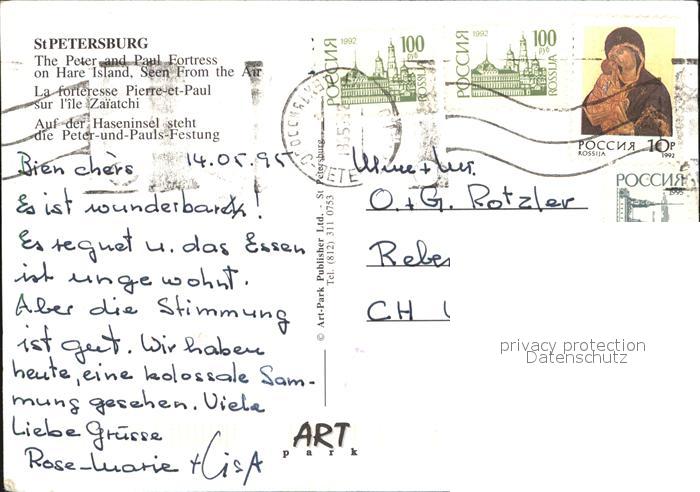 St PETERSBURG
The Peter and Paul Fortress
on Hare Island, Seen From the Air
La forteresse Pierre-et-Paul
sur l'île Zaïatchi
Auf der Haseninsel steht
die Peter-und-Pauls-Festung
Bien chèrs 14.05.95
Es ist wunderbar!
Es regnet u. das Essen
ist ungewohnt.
Aber die Stimmung
ist gut. Wir haben
heute, eine kolossale Sam-
mung gesehen. Viele
Liebe Grüsse
Rose-Marie + Lisa
© Art-Park Publisher Ltd., St Petersburg
Tel. (812) 311 0753
ART
park
РОССИЯ 1992 100 руб ROSSIJA
РОССИЯ 1992 100 руб ROSSIJA
РОССИЯ 10р
ROSSIJA 1992
РОССИЯ
Mme + Mr.
O. + G. Rotzler
Rebe
CH
privacy protection
Datenschutz